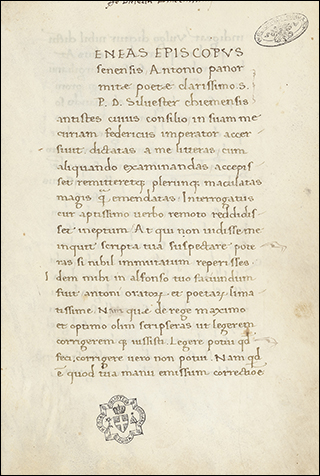 ENEAS EPISCOPVS
senensis Antonio panor
mitę poetę clarissimo. S.
P. D. Silvester chiemensis
antistes cuius consilio in suam me
curiam federicus imperator accer
siuit dictatas a me litteras, cum
aliquando examinandas accepis
set remitteretq; plerunq; maculatas
magis q̄ emendatas Interrogatus
cur aptissimo uerbo remoto reddidis
set ineptum At qui non uidisse me
inquit scripta tua suspectare pote
ras si nihil immutatum reperisses
Idem mihi in alfonso tuo faciundum
fuit antoni oratorꝫ et poetarꝫ lima
tissime. Nam quę de rege maximo
et optimo olim scripseras ut legerem
corrigerem q; iussisti. Legere potui qd
feci, corrigere uero non potui. Nam qd
ē quod tua manu emissum correctioē